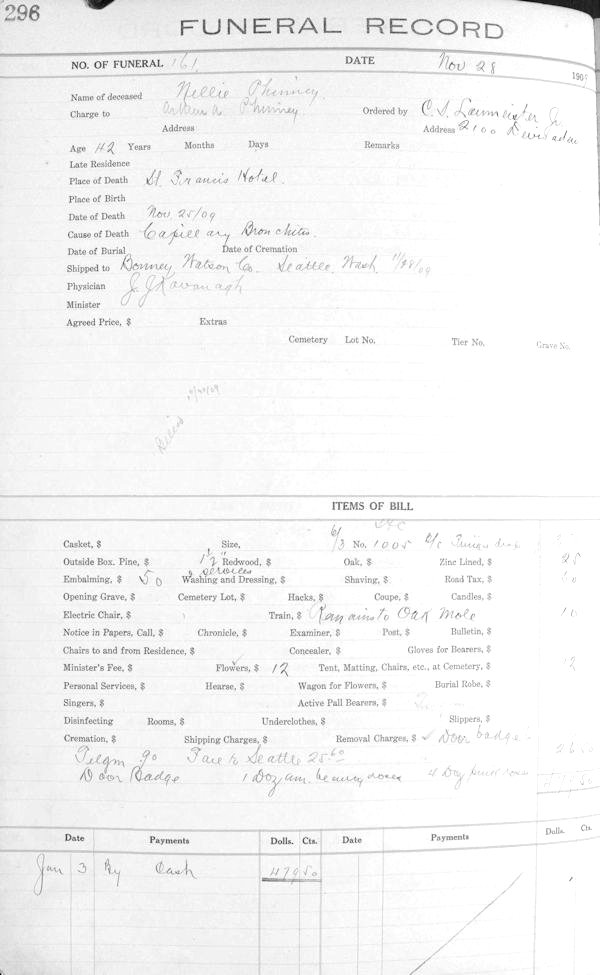 296
FUNERAL RECORD
NO. OF FUNERAL 161 DATE Nov 28 190
Name of deceased Nellie Phinney
Charge to Arthur A Phinney Ordered by C. S. Laumeister Jr.
Address Address 2100
Age 42 Years Months Days Remarks
Late Residence
Place of Death St. Francis Hotel.
Place of Birth
Date of Death Nov. 25/09
Cause of Death Capillary Bronchitis.
Date of Burial Date of Cremation
Shipped to Bonney Watson Co. Seattle, Wash. 11/28/09
Physician J. J Kavanagh
Minister
Agreed Price, $ Extras
Cemetery Lot No. Tier No. Grave No.
ITEMS OF BILL
Casket, $ Size, 6/3 No. 1005
Outside Box. Pine, $ 1½" Redwood, $ Oak, $ Zinc Lined, $ 25
& services
Embalming, $ 50 Washing and Dressing, $ Shaving, $ Road Tax, $
Opening Grave, $ Cemetery Lot, $ Hacks, $ Coupe, $ Candles, $
Electric Chair, $ Train, $ Remains to Oak Mole 10
Notice in Papers, Call, $ Chronicle, $ Examiner, $ Post, $ Bulletin, $
Chairs to and from Residence, $ Concealer, $ Gloves for Bearers, $
Minister's Fee, $ Flowers, $ 12 Tent, Matting, Chairs, etc., at Cemetery, $ 12
Personal Services, $ Hearse, $ Wagon for Flowers, $ Burial Robe, $
Singers, $ Active Pall Bearers, $
Disinfecting Rooms, $ Underclothes, $ Slippers, $
Cremation, $ Shipping Charges, $ Removal Charges, $ Door badge
Telgm 90 Fare to Seattle 25.60
Door Badge 1 Doz am. beauty roses 4 Doz roses
Date Payments Dolls. Cts. Date Payments Dolls. Cts.
Jan 3 By Cash 479 50